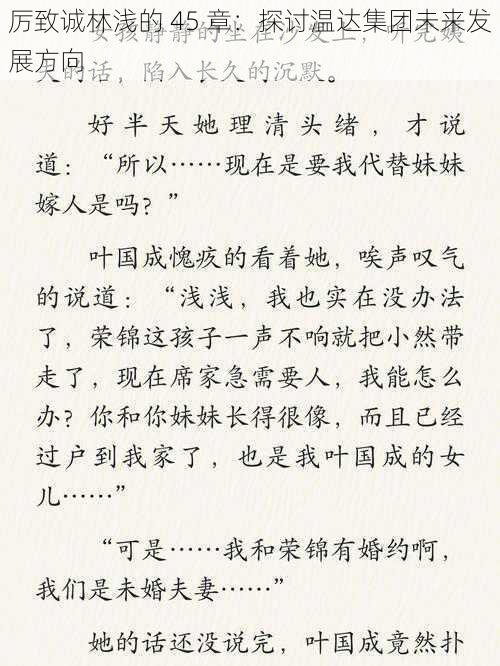 厉致诚林浅的 45 章：探讨温达集团未来发
展方向
女孩静静的坐在沙发上，听完姨
的话，陷入长久的沉默。
好半天她理清头绪，才说
道：“所以……现在是要我代替妹妹
嫁人是吗？”
叶国成愧疚的看着她，唉声叹气
的说道：“浅浅，我也实在没办法
了，荣锦这孩子一声不响就把小然带
走了，现在席家急需要人，我能怎么
办？你和你妹妹长得很像，而且已经
过户到我家了，也是我叶国成的女
儿……”
“可是……我和荣锦有婚约啊，
我们是未婚夫妻……”
她的话还没说完，叶国成竟然扑